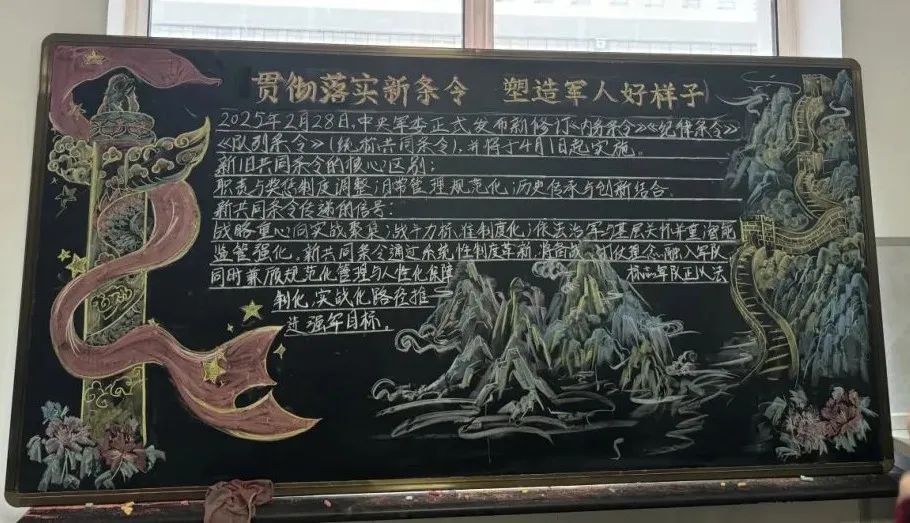 贯彻落实新条令 塑造军人好样子
2025年2月28日,中央军委正式发布新修订《内务条令》《纪律条令》
《队列条令》(统称共同条令),并将于4月1日起实施。
新旧共同条令的核心区别:
职责与奖惩制度调整;日常管理规范化;历史传承与创新结合。
新共同条令传递的信号:
战略重心向实战聚焦;战斗力标准制度化;依法治军与基层关怀并重;智能
监管强化。新共同条令通过系统性制度革新,将备战打仗理念融入军队
同时兼顾规范化管理与人性化保障 标志军队正以法
制化,实战化路径推
进强军目标。